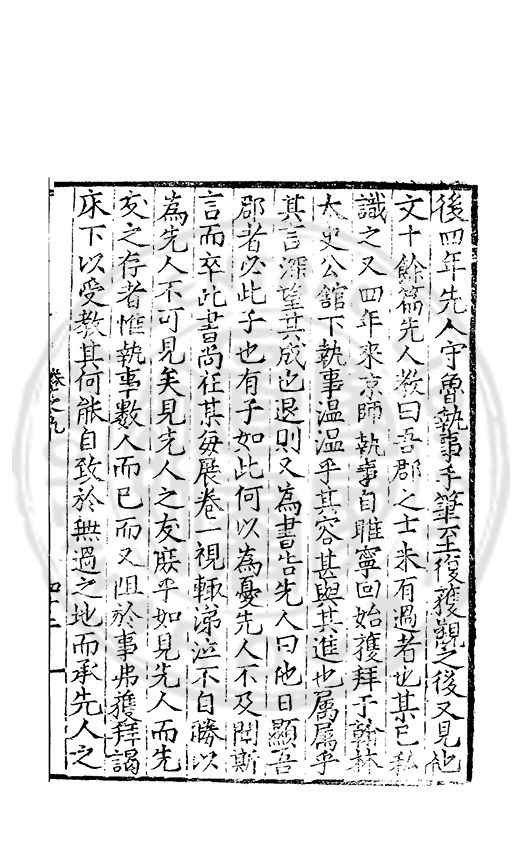 後四年先人守魯執事手筆至復獲觀之後又見他
文十餘篇先人教曰吾郡之士未有過者也某已私
識之又四年來京師執事自睢寧回始獲拜于翰林
太史公舘下執事温温乎其容甚與其進也属属乎
其言深望其成也退則又為書告先人曰他日顯吾
郡者必此子也有子如此何以為憂先人不及聞斯
言而卒此書尚在某每展卷一視輙涕泣不自勝以
為先人不可見矣見先人之友朋乎如見先人而先
友之存者惟執事数人而已而又阻於事弗獲拜謁
床下以受教其何能自致於無過之地而承先人之
卷之九
四十二